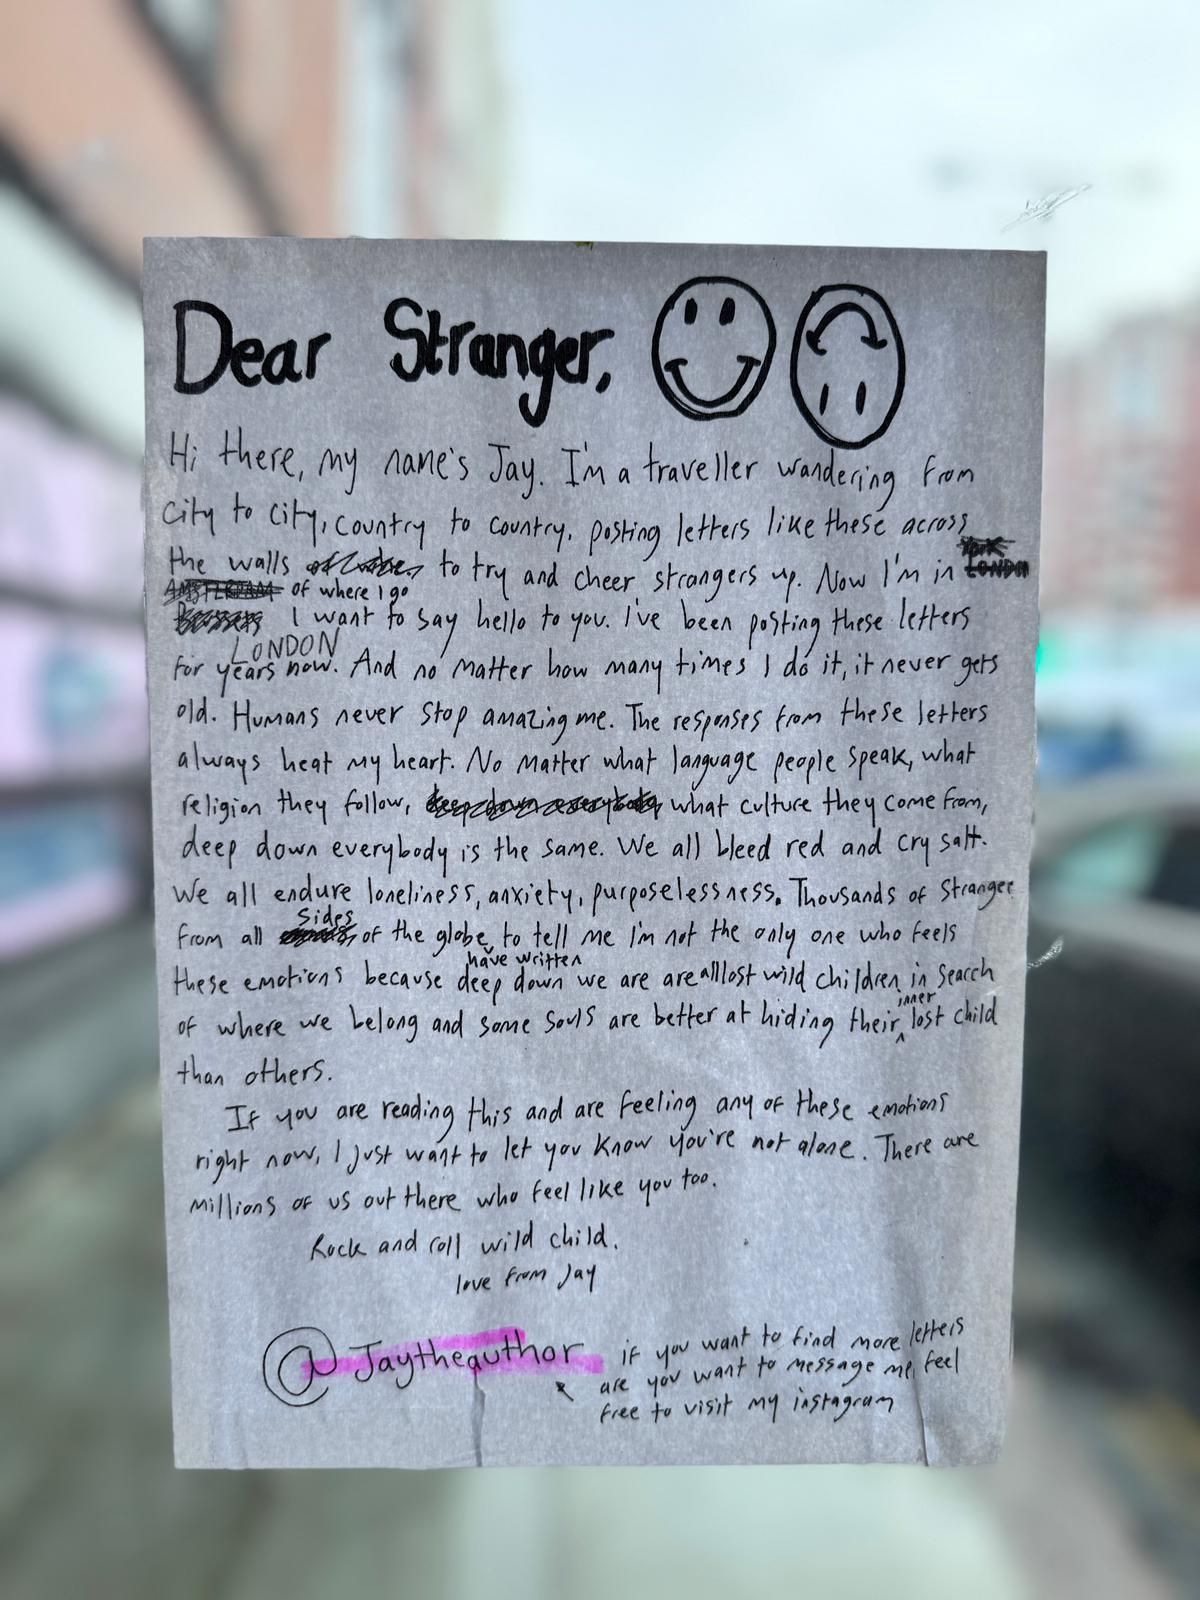 Dear Stranger,
Hi there, my name's Jay. I'm a traveller wandering from
city to city, country to country, posting letters like these across
the walls to try and cheer strangers up. Now I'm in LONDON
AMSTERDAM of where I go
I want to say hello to you. I've been posting these letters
LONDON
for years now. And no matter how many times I do it, it never gets
old. Humans never stop amazing me. The responses from these letters
always heat my heart. No matter what language people speak, what
religion they follow, deep down everybody what culture they come from,
deep down everybody is the same. We all bleed red and cry salt.
We all endure loneliness, anxiety, purposelessness. Thousands of strangers
sides
from all of the globe to tell me I'm not the only one who feels
have written
these emotions because deep down we are are all lost wild children in search
inner
of where we belong and some souls are better at hiding their lost child
than others.
If you are reading this and are feeling any of these emotions
right now, I just want to let you know you're not alone. There are
millions of us out there who feel like you too.
Rock and roll wild child.
love from Jay
@Jaytheauthor
if you want to find more letters
are you want to message me, feel
free to visit my instagram